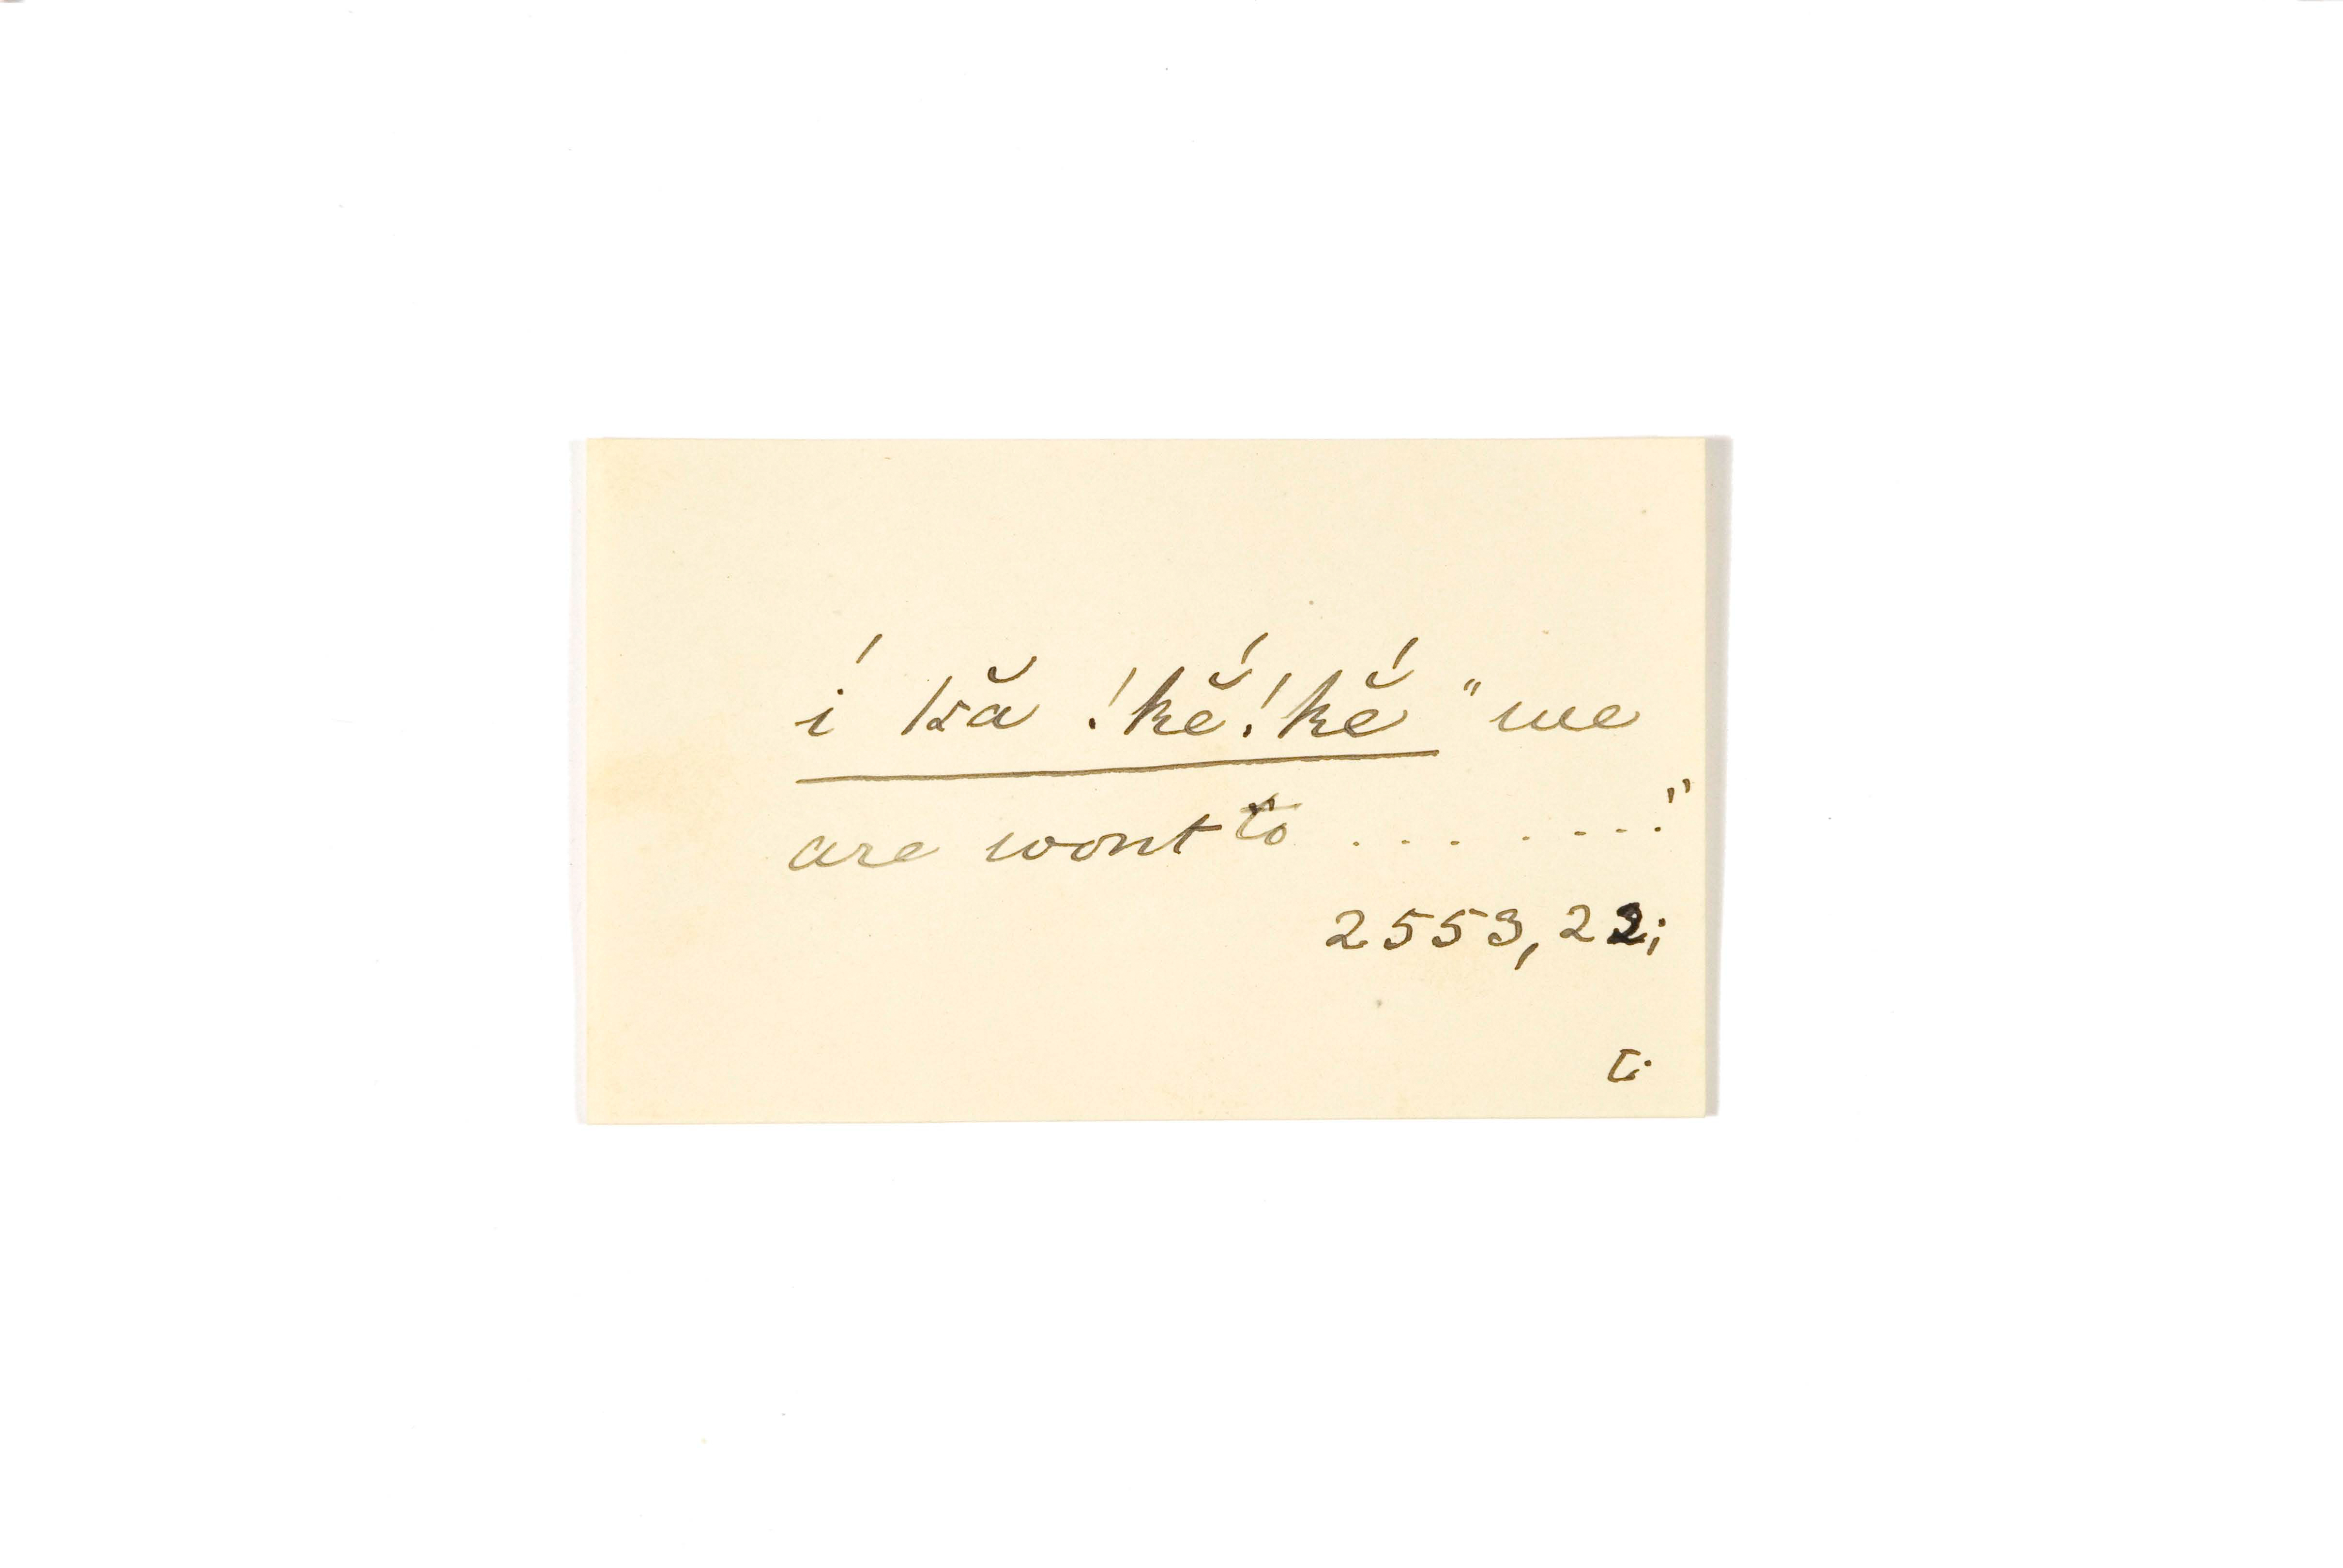 í ǀkă !kĕ́!kĕ́ "we
are wont to . . . . . . . ."
2553, 22;
t.